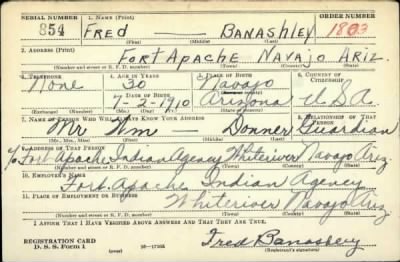 SERIAL NUMBER 1. NAME (Print) ORDER NUMBER
854 FRED — BANASHLEY 1803
(First) (Middle) (Last)
2. ADDRESS (Print)
FORT APACHE NAVAJO ARIZ.
(Number and street or R. F. D. number) (Town) (County) (State)
3. TELEPHONE 4. AGE IN YEARS 5. PLACE OF BIRTH 6. COUNTRY OF CITIZENSHIP
None 30 Navajo
DATE OF BIRTH
7-2-1910 Arizona U.S.A.
(Exchange) (Number) (Mo.) (Day) (Yr.) (State or country)
7. NAME OF PERSON WHO WILL ALWAYS KNOW YOUR ADDRESS 8. RELATIONSHIP OF THAT PERSON
Mr Wm — Donner Guardian
(Mr., Mrs., Miss) (First) (Middle) (Last)
9. ADDRESS OF THAT PERSON
c/o Fort Apache Indian Agency Whiteriver Navajo Ariz
(Number and street or R. F. D. number) (Town) (County) (State)
10. EMPLOYER'S NAME
Fort Apache Indian Agency
11. PLACE OF EMPLOYMENT OR BUSINESS
Whiteriver Navajo Ariz
(Number and street or R. F. D. number) (Town) (County) (State)
I AFFIRM THAT I HAVE VERIFIED ABOVE ANSWERS AND THAT THEY ARE TRUE.
REGISTRATION CARD
D. S. S. Form 1 (over) Fred Banashley
(Registrant's signature)